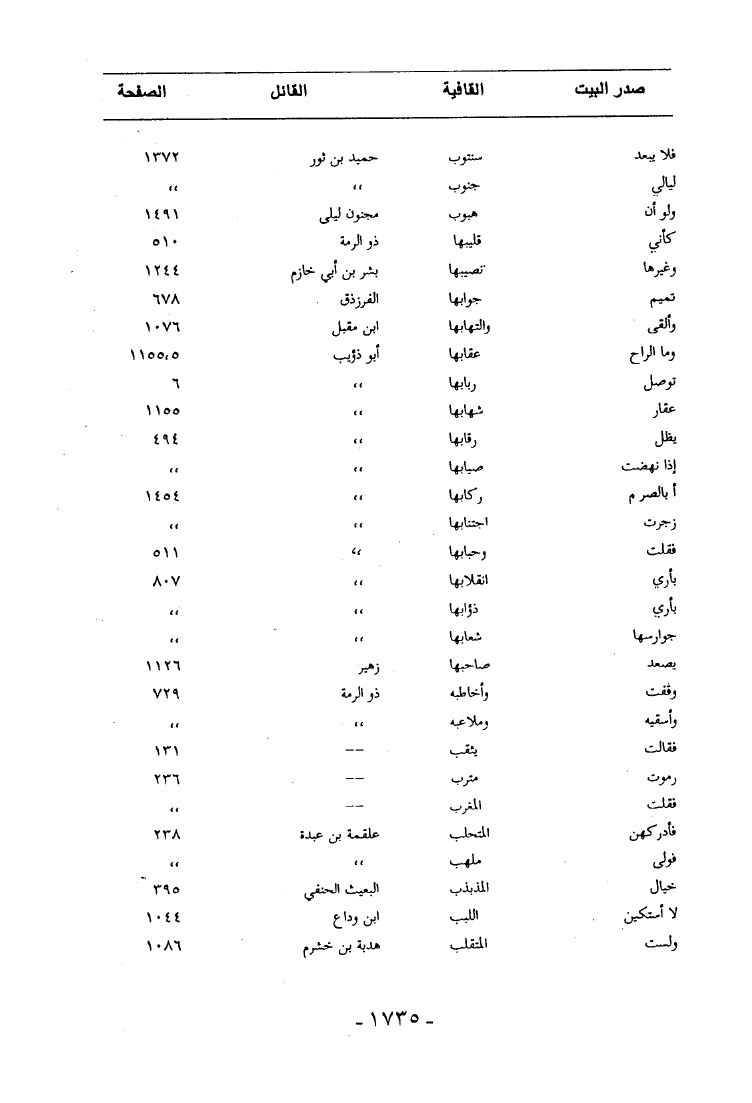 صدر البيت القافية القائل الصفحة
فلا يبعد ستتوب حميد بن ثور ١٣٧٢
ليالي جنوب ،، ،،
ولو أن هبوب مجنون ليلى ١٤٩١
كأني قليبها ذو الرمة ٥١٠
وغيرها نصيبها بشر بن أبي خازم ١٢٤٤
تميم جوابها الفرزذق ٦٧٨
وألقى والتهابها ابن مقبل ١٠٧٦
وما الراح عقابها أبو ذؤيب ١١٥٥،٥
توصل ربابها ،، ٦
عقار شهابها ،، ١١٥٥
يظل رقابها ،، ٤٩٤
إذا نهضت صيابها ،، ،،
أ بالصرم ركابها ،، ١٤٥٤
زجرت اجتنابها ،، ،،
فقلت وحبابها ،، ٥١١
بأري انقلابها ،، ٨٠٧
بأري ذؤابها ،، ،،
جوارسها شعابها ،، ،،
يصعد صاحبها زهير ١١٢٦
وقفت وأخاطبه ذو الرمة ٧٢٩
وأسقيه وملاعبه ،، ،،
فقالت يثقب -- ١٣١
رموت مترب -- ٢٣٦
فقلت المغرب -- ،،
فأدركهن المتحلب علقمة بن عبدة ٢٣٨
فولى ملهب ،، ،،
خيال المذبذب البعيث الحنفي ٣٩٥
لا أستكين اللبب ابن وداع ١٠٤٤
ولست المتقلب هدبة بن خشرم ١٠٨٦
- ١٧٣٥ -